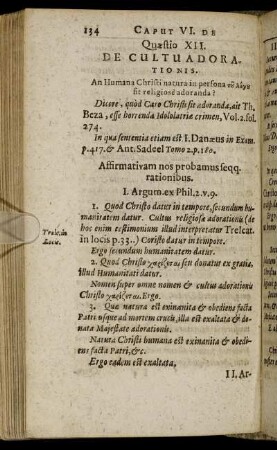 134 CAPUT VI. DE
Quæstio XII.
DE CULTU ADORA-
TIONIS.
An Humana Christi natura in persona τȣ̃ λόγȣ
sit religiosè adoranda?
Dicere, quòd Caro Christi sit adoranda, ait Th.
Beza, esse horrenda Idololatriæ crimen, Vol. 2. fol.
274.
In qua sententia etiam est I. Danæus in Exam.
p. 417. & Ant. Sadeel Tomo 2. p. 180.
Affirmativam nos probamus seqq.
rationibus.
I. Argum. ex Phil. 2. v. 9.
1. Quod Christo datur in tempore, secundum hu-
manitatem datur. Cultus religiosæ adorationis (de
hoc enim testimonium illud interpretatur Trelcat.
in locis p. 33.) Christo datur in tempore.
Trelcat. in
Locis.
Ergo secundum humanitatem datur.
2. Quod Christo χαρίζεται seu donatur ex gratia.
Illud Humanitati datur.
Nomen super omne nomen & cultus adorationis
Christo χαρίζεται. Ergo.
3. Quæ natura est exinanita & obediens facta
Patri usque ad mortem crucis, illa est exaltata & do-
nata Majestate adorationis.
Natura Christi humana est exinanita & obedi-
ens facta Patri, &c.
Ergo eadem est exaltata.
II. Ar-